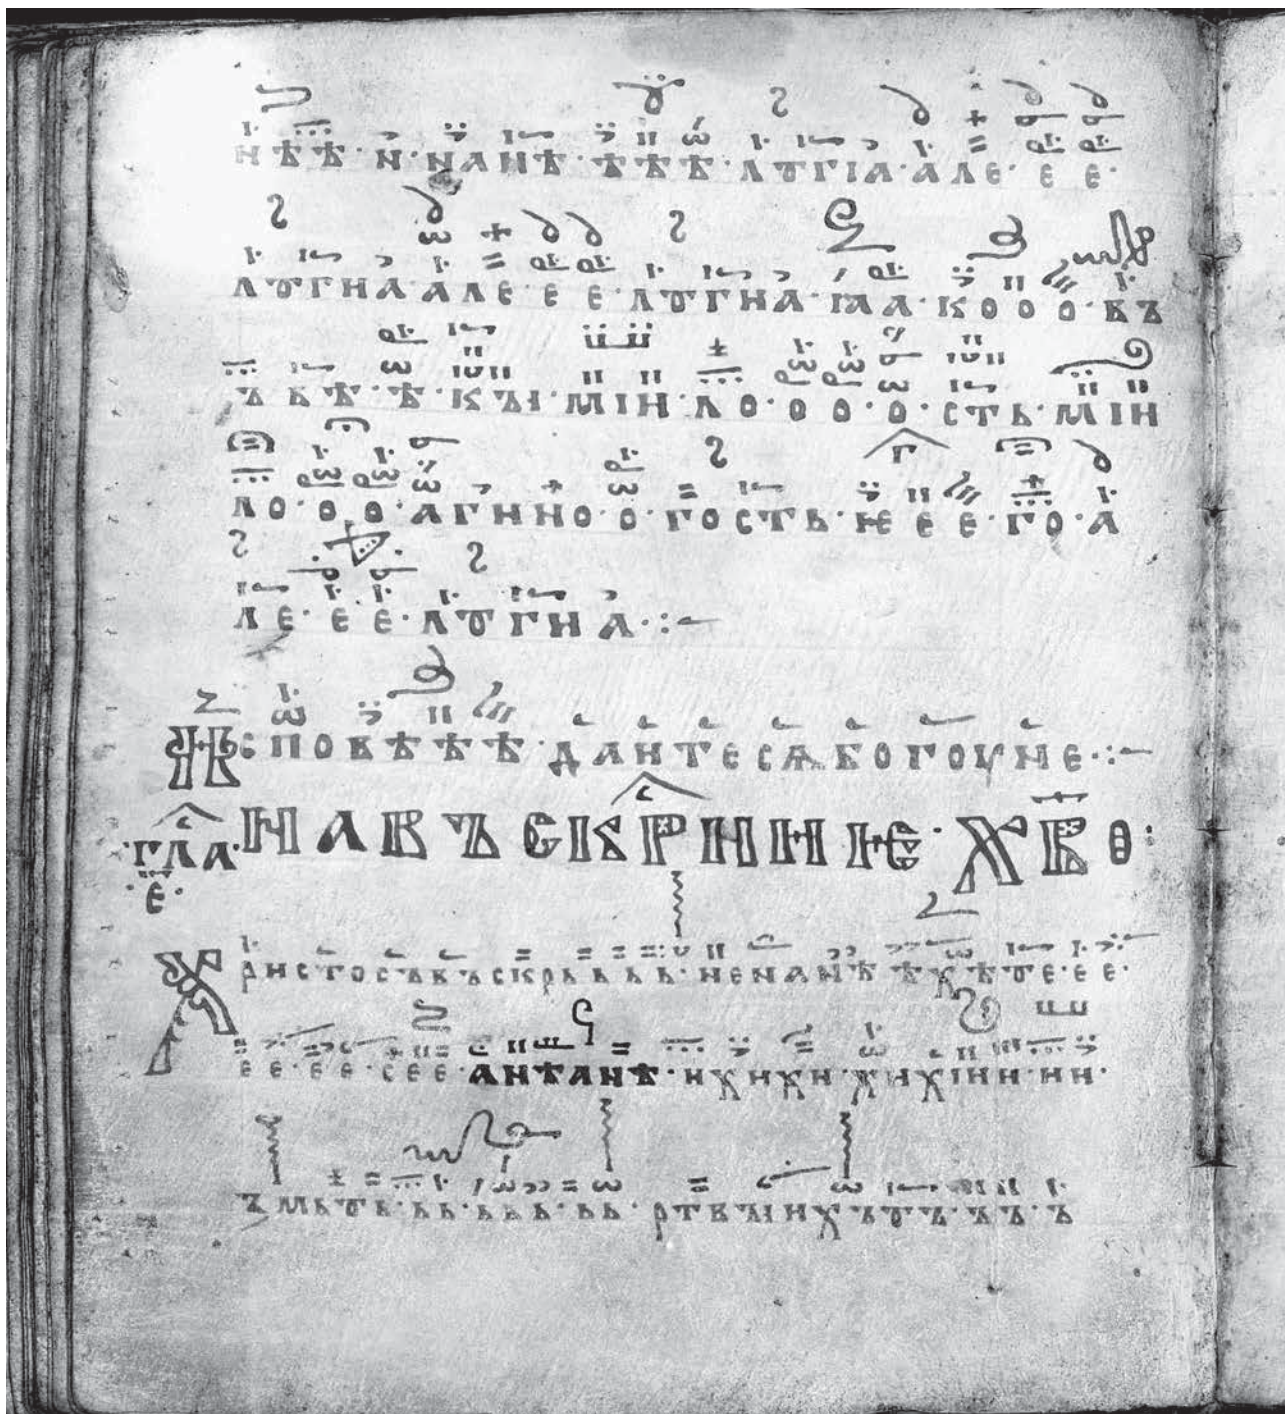 нѣѣ· н· нанѣ· ѣѣѣ· лꙋгіа· але· е е·
лꙋгна· але· е е· лꙋгна· ꙗа· ко о о· въ
ъ вѣ· ѣ· кꙑ· мін· ло· о о· о· сть· мін
ло· о· о· агнно· о· гость· ѥ е е· го· а
ле· е е· лꙋгна·:·
Исповѣѣѣ· дантесѧ богоуне·:·
на въскрнниѥ· хв о:
гла·
·е·
Христосъвъскрь ь ь ь· ненанѣ ѣ хѣ ꙋе· е е·
е е· е е· с е е· анѣанѣ· нхнхн·
ъмьꙋь· ь ь· ь ь ь· ь ь· ртвꙑнхъꙋъ· ъ ъ· ъ